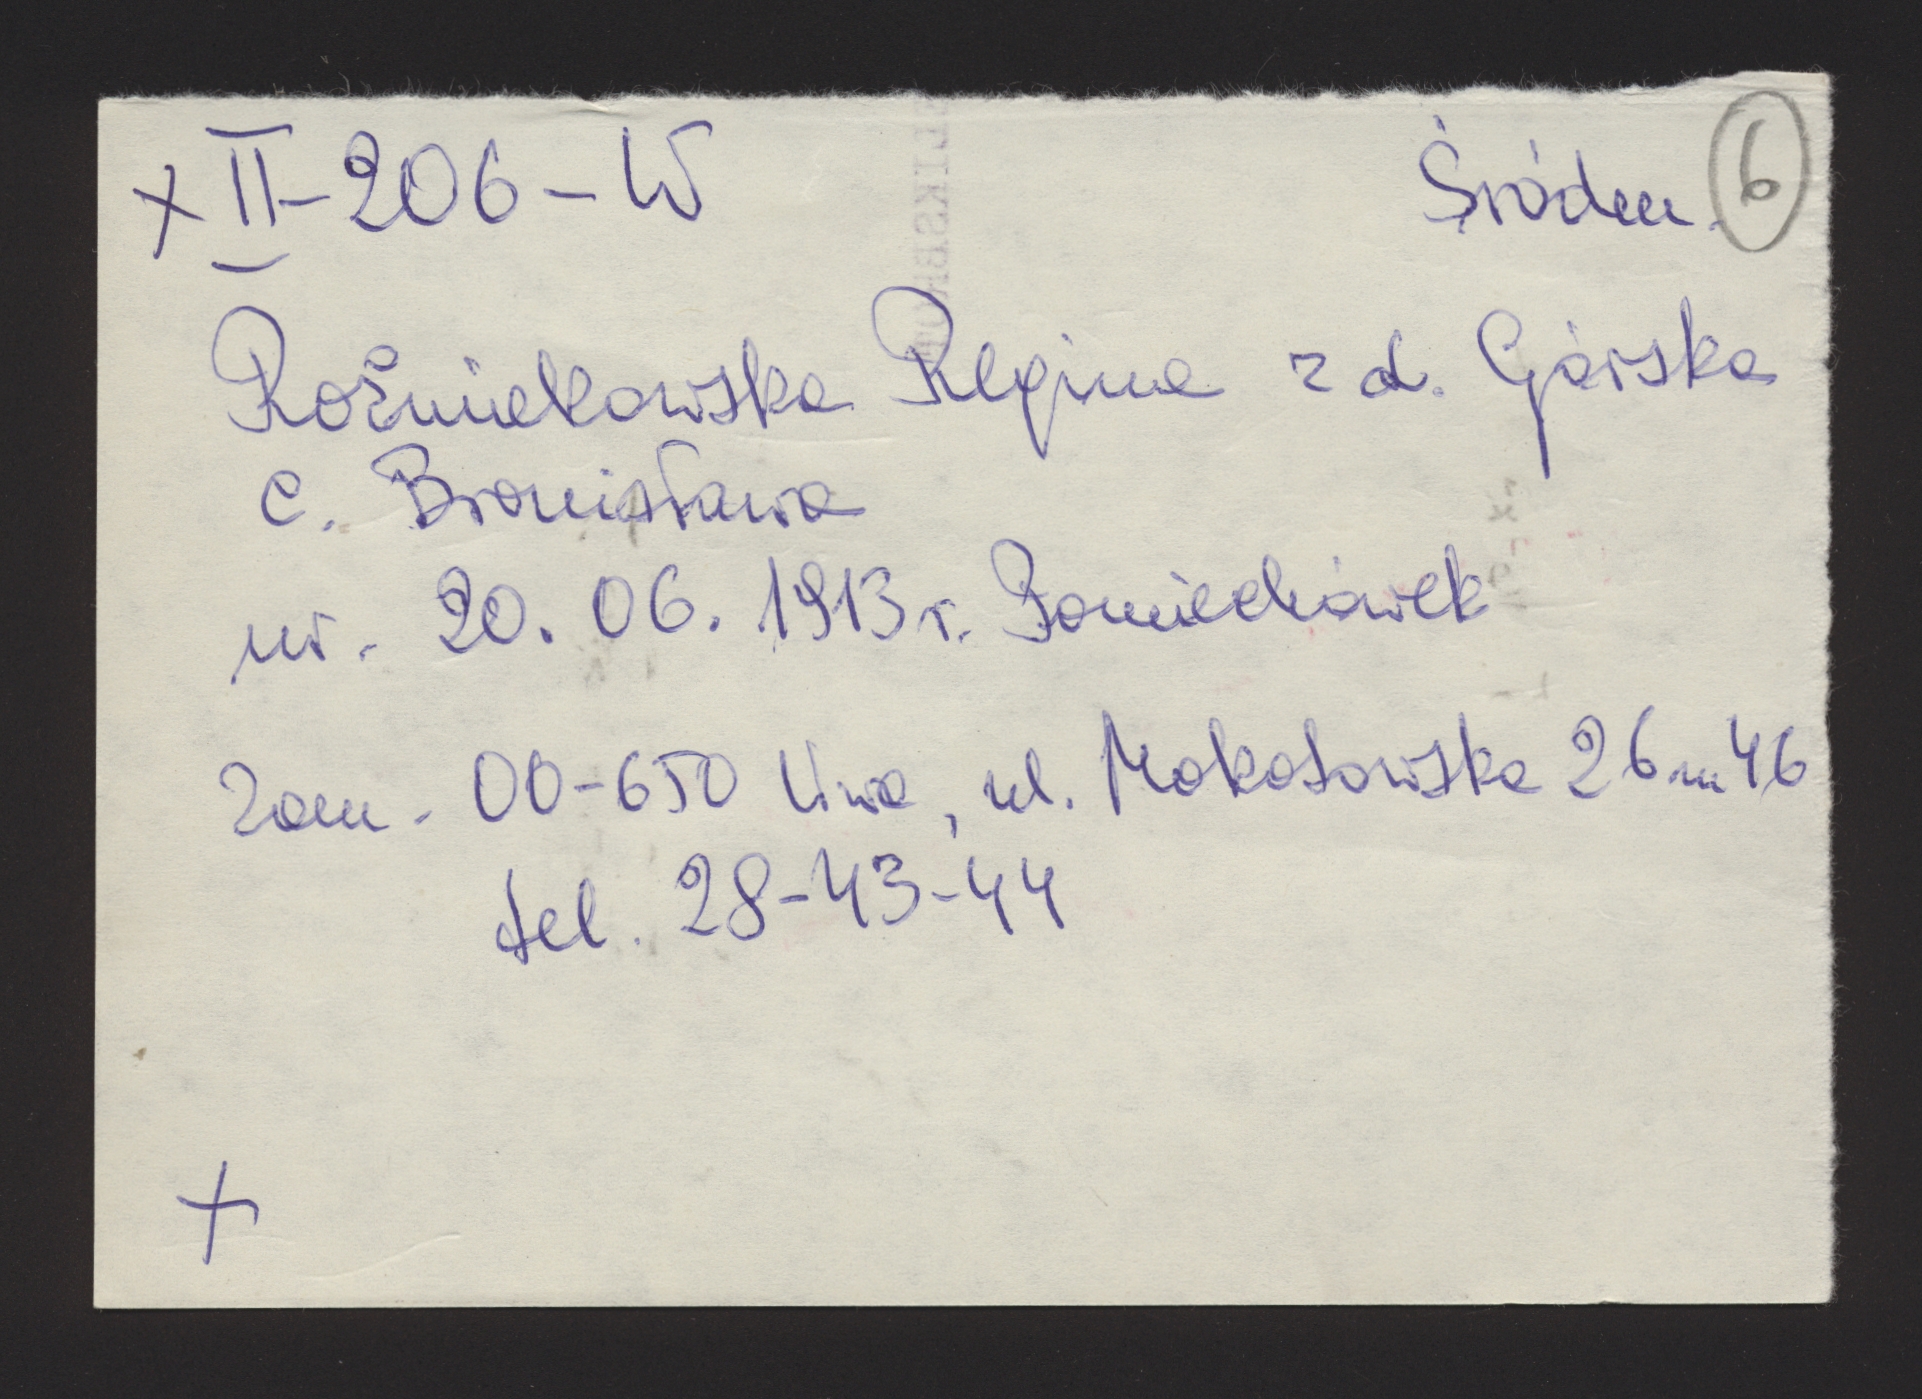 x II-206-W Śródm. 6
Roźniekowska Regina z d. Górska
c. Bronisława
ur. 20. 06. 1913 r. Pomiechówek
zam. 00-650 W-wa, ul. Mokotowska 26 m 46
tel. 28-43-44
+